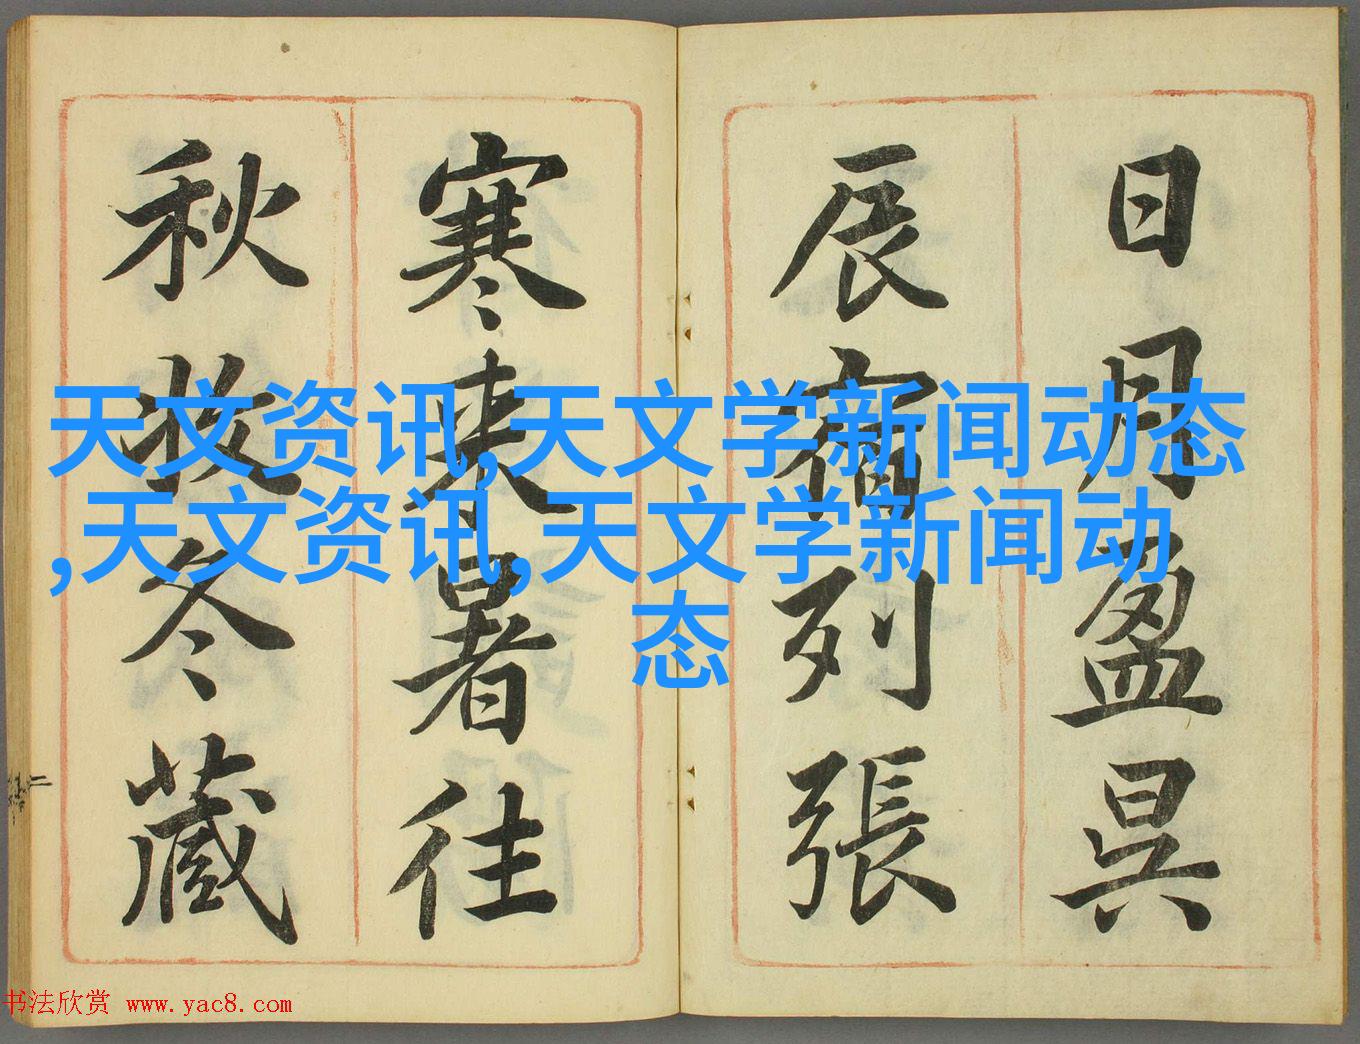 日月盈昃
辰宿列張
寒來暑往
秋收冬藏
天文资讯,天文学新闻动态
,天文资讯,天文学新闻动
态
书法欣赏 www.yac8.com